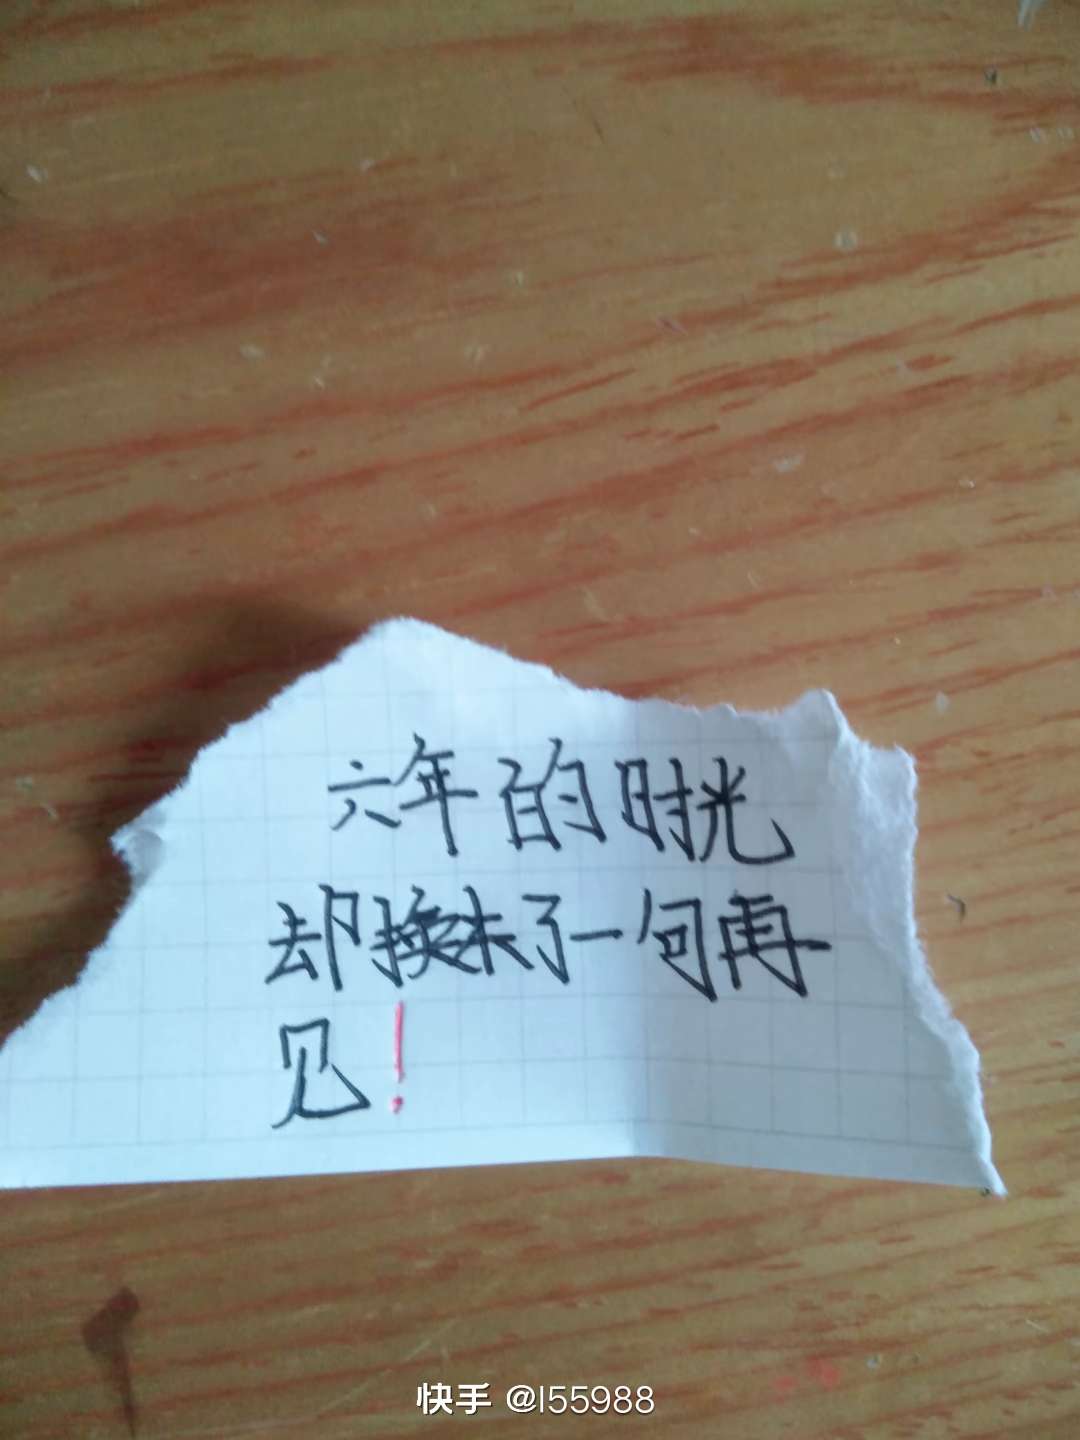 六年的时光
却换来了一句再
见!
快手 @l55988